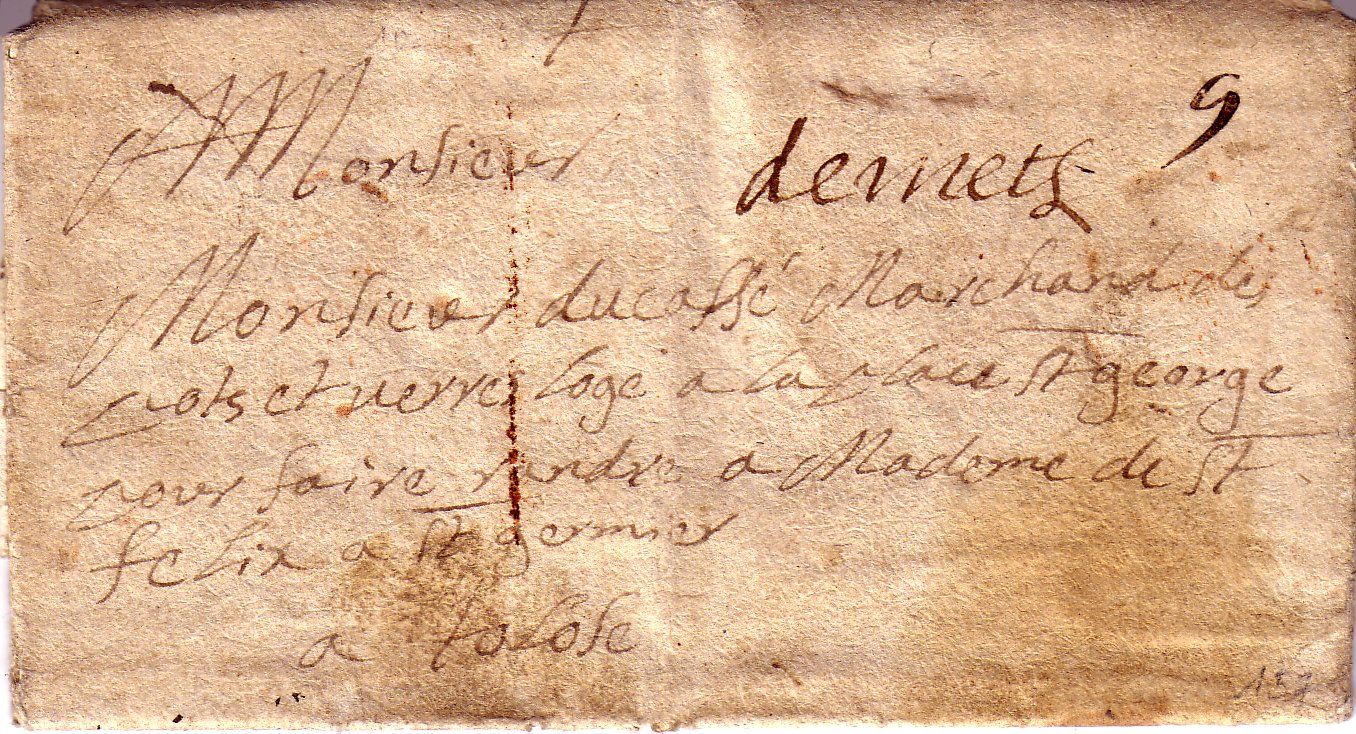 9
A Monsieur demetz
Monsieur ducassé Marchand des
pots et verres loge a la place st george
pour faire randre a Madame de st
felix a st germier
a tolose